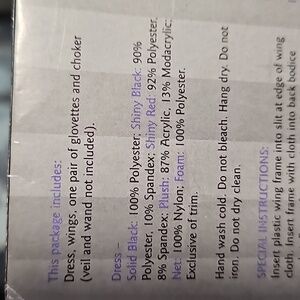 This package includes:
Dress, wings, one pair of glovettes and choker
(veil and wand not included).
Dress –
Solid Black: 100% Polyester; Shiny Black: 90%
Polyester, 10% Spandex; Shiny Red: 92% Polyester,
8% Spandex; Plush: 87% Acrylic, 13% Modacrylic;
Net: 100% Nylon; Foam: 100% Polyester.
Exclusive of trim.
Hand wash cold. Do not bleach. Hang dry. Do not
iron. Do not dry clean.
SPECIAL INSTRUCTIONS:
Insert plastic wing frame into slit at edge of wing
cloth. Insert frame with cloth into back bodice